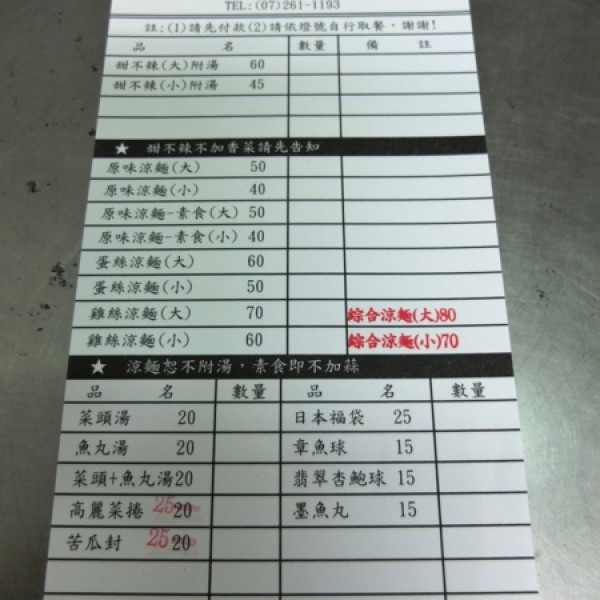 TEL:(07)261-1193
註:(1)請先付款(2)請依燈號自行取餐，謝謝!
品 名 數量 備 註
甜不辣(大)附湯 60
甜不辣(小)附湯 45
★ 甜不辣不加香菜請先告知
原味涼麵(大) 50
原味涼麵(小) 40
原味涼麵-素食(大) 50
原味涼麵-素食(小) 40
蛋絲涼麵(大) 60
蛋絲涼麵(小) 50
雞絲涼麵(大) 70 綜合涼麵(大)80
雞絲涼麵(小) 60 綜合涼麵(小)70
★ 涼麵恕不附湯，素食即不加蒜
品 名 數量 品 名 數量
菜頭湯 20 日本福袋 25
魚丸湯 20 章魚球 15
菜頭+魚丸湯20 翡翠杏鮑球 15
高麗菜捲 25 20 墨魚丸 15
苦瓜封 25 20